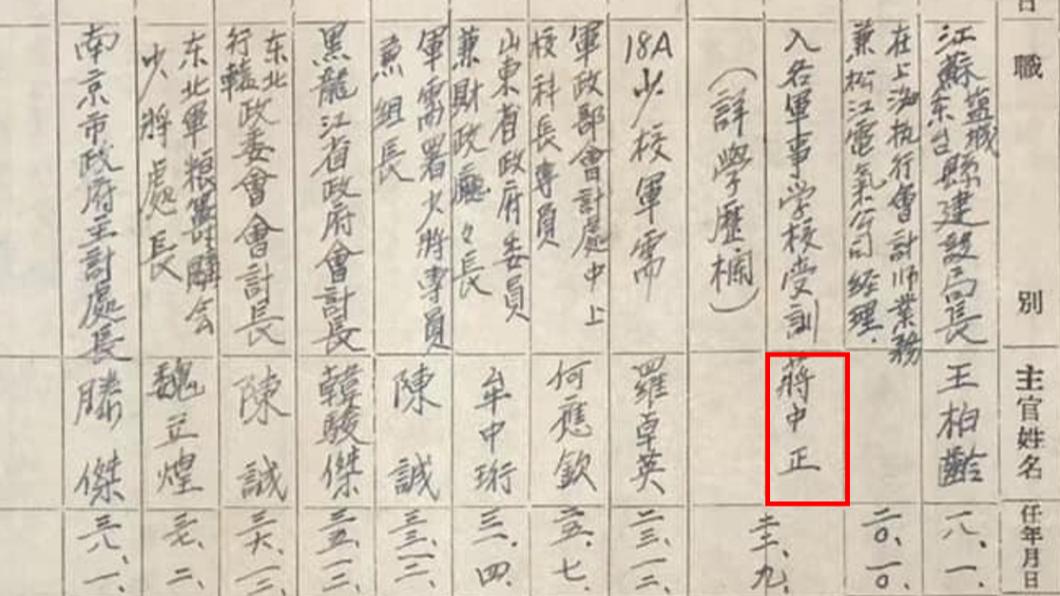 職別
主官姓名
任年月日
江蘇鹽城东台縣建設局長
王柏齡
一八.一.
在上海执行會計师業務
兼松江電氣公司經理.
二〇.一〇.
入各軍事学校受訓
蔣中正
(詳學歷欄)
九.
18A少校軍需
羅卓英
二三.一二.
軍政部會計處中上
校科長專員
何應欽
二五.七.
山東省政府委員
兼財政廳々長
牟中珩
三一.四.
軍需署少將專員
兼組長
陳誠
三三.一二.
黑龍江省政府會計長
韓駿傑
三五.一二.
东北
行轅政委會會計長
陳誠
三六.一二.
东北軍粮籌購会
少將處長
魏立煌
三七.二.
南京市政府主計處長
滕傑
三八.一.